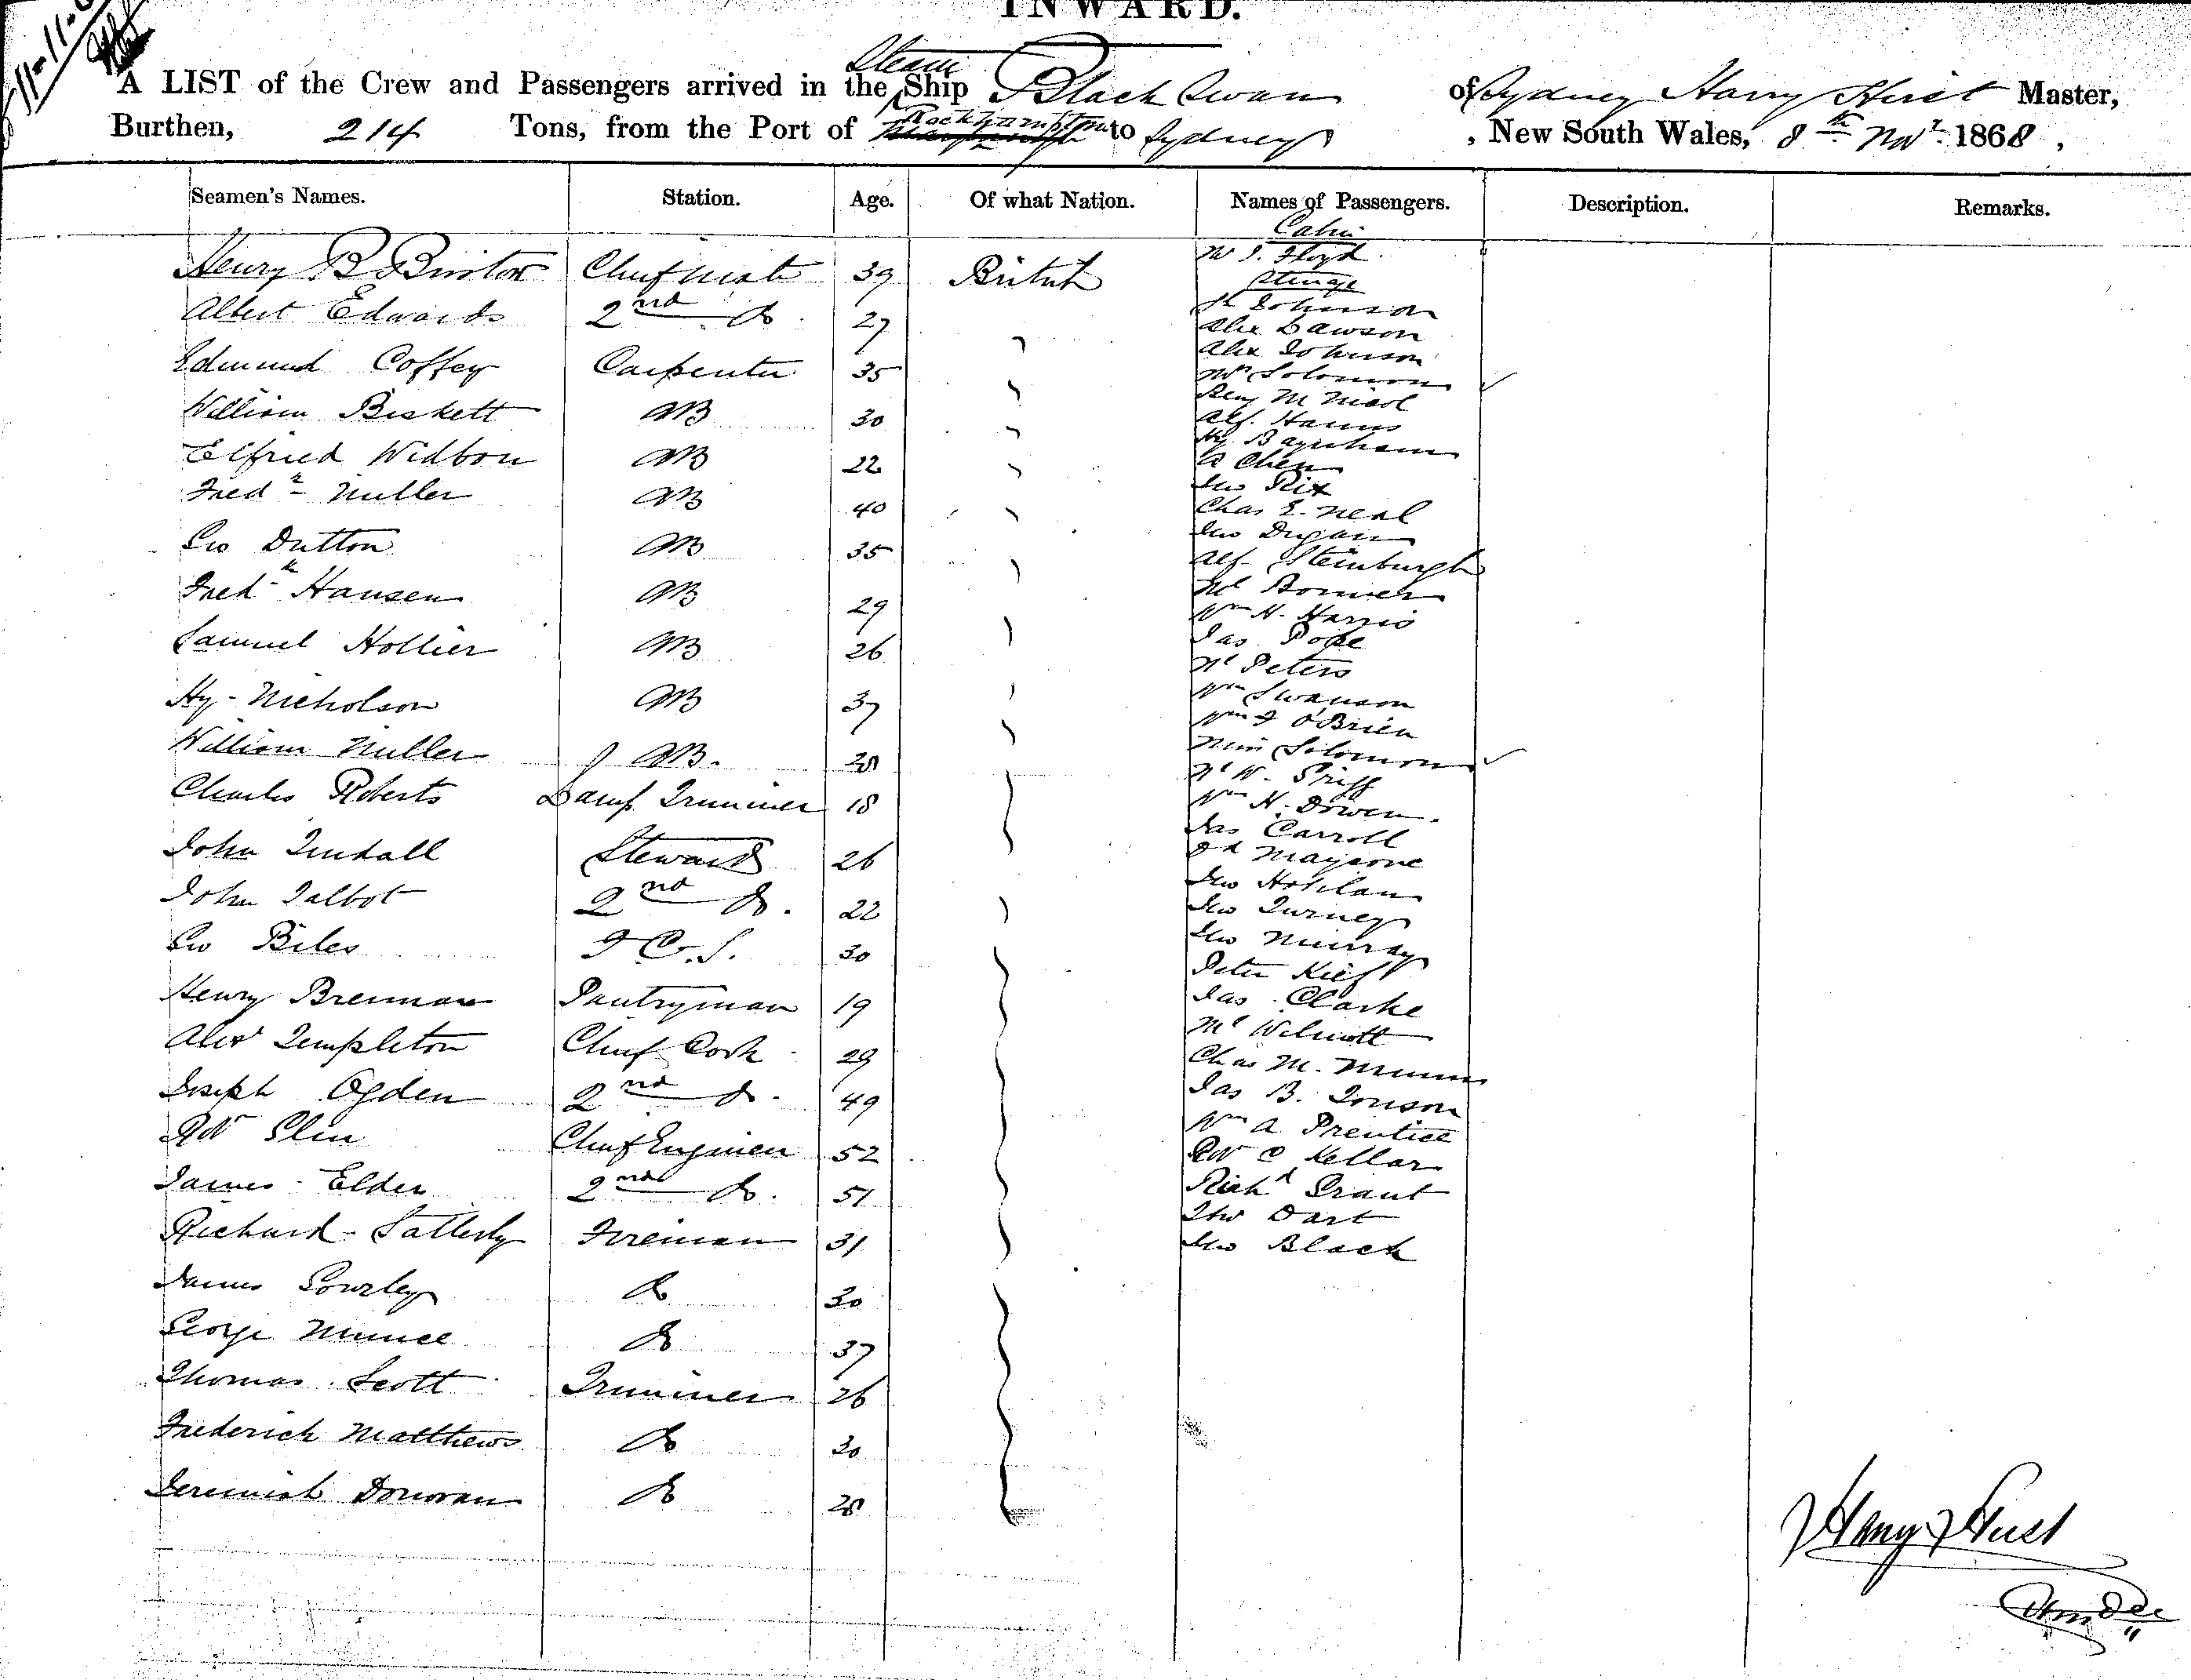 INWARD.
11-11-6
A LIST of the Crew and Passengers arrived in the Steam Ship Black Swan of Sydney Harry Hirst Master,
Burthen, 214 Tons, from the Port of Rockhampton to Sydney, New South Wales, 8th Novr 1868,
Seamen's Names. Station. Age. Of what Nation. Names of Passengers. Description. Remarks.
Henry B Bristow Chief Mate 39 British
Albert Edwards 2nd Do 27
Edmund Coffey Carpenter 35
William Beskett AB 30
Elfried Widbom AB 22
Fredk Miller AB 40
Geo Dutton AB 35
Fredk Hansen AB 29
Samuel Hollier AB 26
Hy Nicholson AB 37
William Miller AB. 28
Charles Roberts Lamp Trimmer 18
John Tindall Steward 26
John Talbot 2nd Do. 22
Geo Biles F C. S. 30
Henry Brennan Pantryman 19
Alexr Templeton Chief Cook 29
Joseph Ogden 2nd Do. 49
Robt Chief Engineer 52
James Elder 2nd Do. 51
Richard Satterly Fireman 31
James Gourley Do 30
George Munce Do 37
Thomas Scott Trimmer 26
Frederick Matthews Do 30
Jeremiah Donovan Do 28
Cabin
Mr J. Floyd
Steerage
Johnson
Alex Dawson
Alex Johnson
Mrs Solomon
Benj McNicol
Alf. Harris
Hy. Baynham
A Chen
Geo Rix
Chas E. Neal
Geo Dugan
Alf Steinburgh
Ml Bonner
Wm H. Harris
Jas Pope
Peters
Wm Swanson
Wm J O'Brien
Miss Solomon
W.
Wm H. Dowen.
Jas Carroll
Geo
Geo Turney
Geo Murray
Peter Kief
Jas Clarke
Ml Wilmott
Chas M. Munn
Jas B. Tonson
Wm A Prentice
Robt C Kellar
Richd Grant
Thos Dart
Geo Black
Harry Hirst